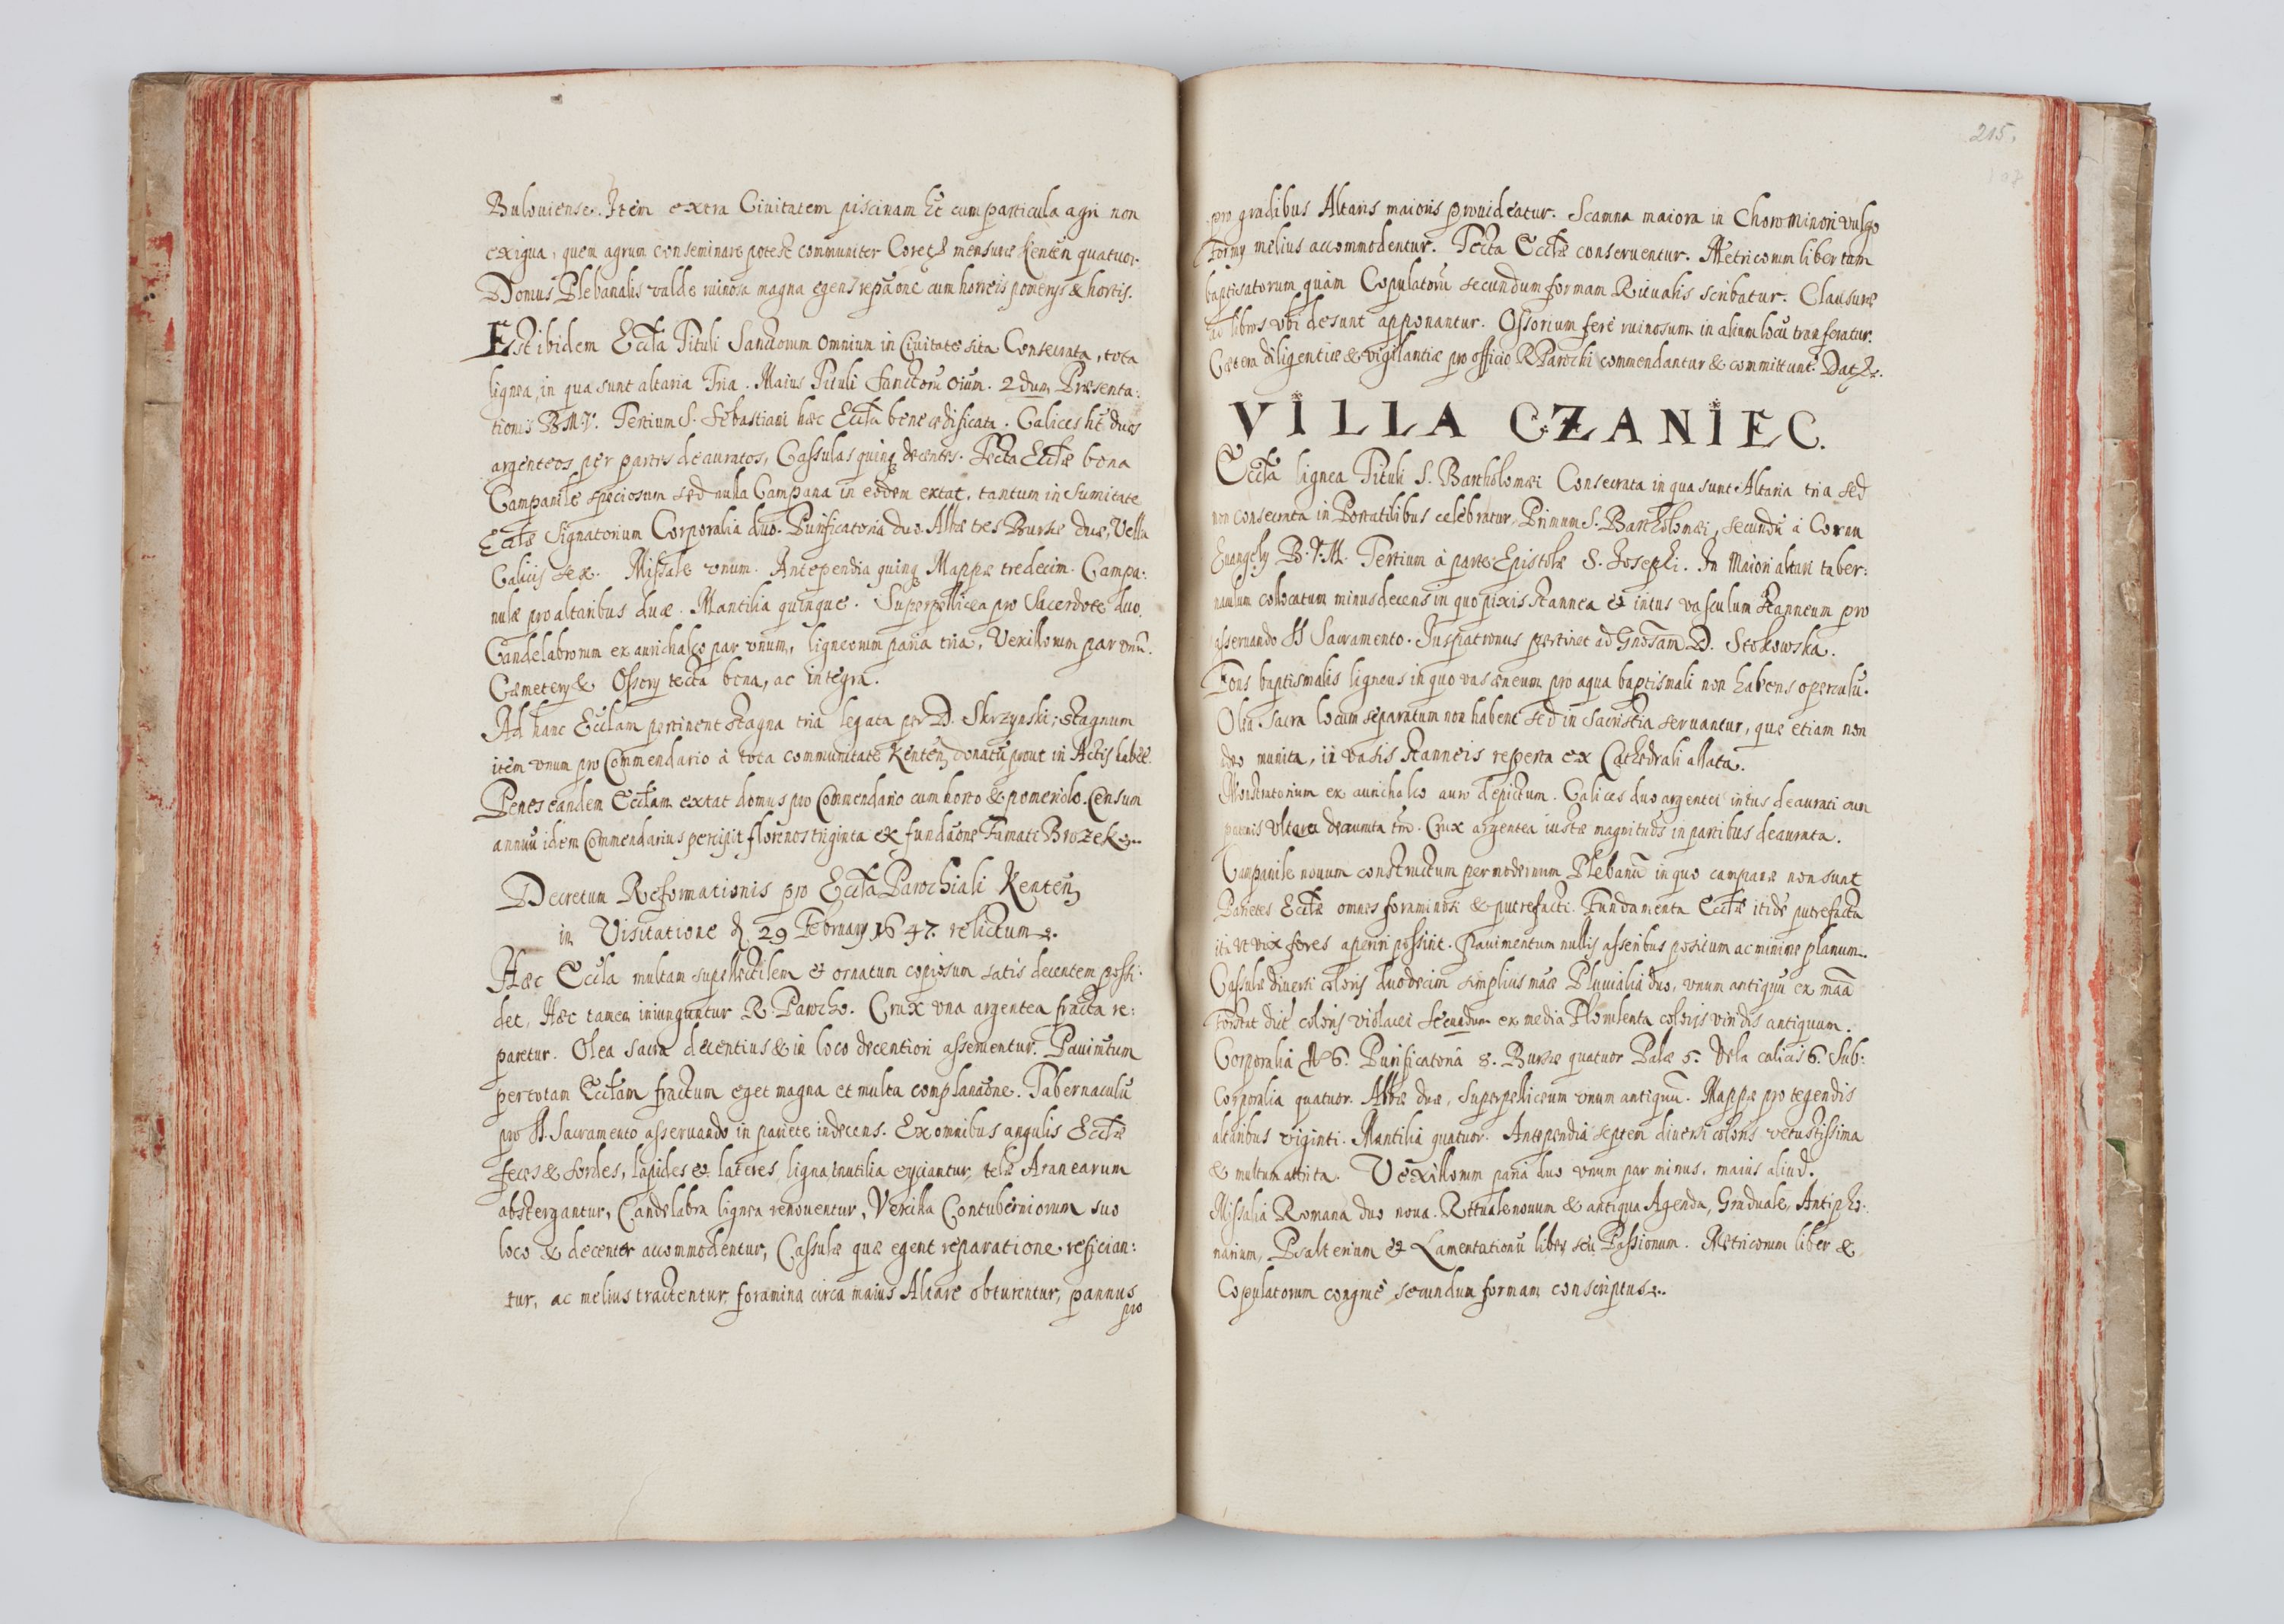 Bulouiense. Item extra Ciuitatem piscinam ht cum particula agri non
exigua, quem agrum conseminare potest communiter Coreti mensuræ Kenten quatuor.
Domus Plebanalis valde ruinosa magna egens repaõne cum horreis pomerijs & hortis.
Est ibidem Eccła Tituli Sanctorum Omnium in Ciuitate sita Consecrata, tota
lignea, in qua sunt altaria Tria. Maius Tituli Sanctorũ oium. 2dum Præsenta:
tionis B.M.V. Tertium S. Sebastiani hæc Eccła bene ædificata. Calices ht duos
argenteos per partes deauratos, Cassulas quinq decentes. Tecta Eccłæ bona
Campanile speciosum sed nulla Campana in eodem extat, tantum in Sumitate
Eccłæ Signatorium Corporalia duo. Purificatoria duo. Albæ tres Bursæ duæ, Vella
Calicis sex. Missale vnum. Antependia quinq Mappæ tredecim. Campa:
nulæ pro altaribus duæ. Mantilia quinque. Superpellicea pro Sacerdote duo.
Candelabrorum ex aurichalco par vnum, ligneorum paria tria, Vexillorum par vnũ.
Cæmeterij & Ossorij tecta bona, ac integra.
Ad hanc Ecclam pertinent stagna tria legata per D. Skrzynski; stagnum
item vnum pro Commendario à tota communitate Kenten donatũ prout in Actis habet.
Penes eandem Ecclam extat domus pro Commendario cum horto & pomeriolo. Censum
annuũ idem Commendarius percipit florenos triginta ex fundaõne Famati Brozek
Decretum Reformationis pro Eccła Parochiali Kenten
in Visitatione d 29 February 1647. relictum.
Hæc Eccła multam supellectilem et ornatum copiosum satis decentem possi:
det, Hæc tamen iniunguntur R. Parocho. Crux vna argentea fracta re:
paretur. Olea Sacra decentius & in loco decentiori asseruentur. Pauimẽtum
per totam Ecclam fractum eget magna et multa complanaõne. Tabernaculũ
pro SS. Sacramento asseruando in pariete indecens. Ex omnibus angulis Eccłæ
feces & sordes, lapides et lateres, ligna inutilia eijciantur, telæ Aranearum
abstergantur, Candelabra lignea renouentur, Vexilla Contuberniorum suo
loco & decenter accommodentur, Cassulæ quæ egent reparatione refician:
tur, ac melius tractentur, foramina circa maius Altare obturentur, pannus
pro
215.
pro gradibus Altaris maioris prouideatur. Scamna maiora in Choro minori vulgo
Formy melius accommodentur. Tecta Eccłæ conseruentur. Metricorum liber tam
baptisatorum quàm Copulatorũ secundum formam Ritualis scribatur. Clausuræ
ad libros vbi desunt apponantur. Ossorium ferè ruinosum in alium locũ transferatur.
Cætera diligentiæ & vigilantiæ pro officio R Parochi commendantur & committunt. Dat
VILLA CZANIEC.
Eccła lignea Tituli S. Bartholomæi Consecrata in qua sunt Altaria tria sed
non consecrata in Portatilibus celebratur, Primum S. Bartholomæi, secundũ à Cornu
Euangelij B.V.M. Tertium à parte Epistolæ S. Josephi. In Maiori altari taber:
naculum collocatum minus decens in quo pixis stannea et intus vasculum stanneum pro
asseruando SS Sacramento. Juspatronus pertinet ad Gnosam D. Stokowska.
Fons baptismalis ligneus in quo vas æneum pro aqua baptismali non habens operculũ.
Olea Sacra locum separatum non habent sed in Sacristia seruantur, quæ etiam non
adeo munita, in vasis stanneis reperta ex Cathedrali allata.
Monstratorium ex aurichalco auro depictum. Calices duo argentei intus deaurati cum
patenis deaurata tm̃. Crux argentea iustæ magnitudis in partibus deaurata.
Campanile nouum constructum per modernum Plebanũ in quo campanæ non sunt
Parietes Eccłæ omnes foraminosi & putrefacti. Fundamenta Eccłæ itidẽ putrefacta
ita vt vix fores aperiri possint. Pauimentum nullis asseribus positum ac minime planum.
Cassulæ diuersi coloris duodecim simplius mãæ Pluuialia duo, vnum antiquũ ex mãa
Forstat dict coloris violacei Secundum ex media coloris viridis antiquum.
Corporalia No 6. Purificatoria 8. Bursæ quatuor Palæ 5. Vela calicis 6. Sub:
corporalia quatuor. Albæ duæ, Superpelliceum vnum antiquũ. Mappæ pro tegendis
altaribus viginti. Mantilia quatuor. Antependia septem diuersi coloris vetustissima
& multum attrita. Vexillorum paria duo vnum par minus, maius aliud.
Missalia Romana duo noua. Rituale nouum & antiqua Agenda, Graduale, Antipho:
narium, Psalterium et Lamentationũ liber seu Passionum. Metricorum liber &
Copulatorum congruè secundum formam conscriptus.